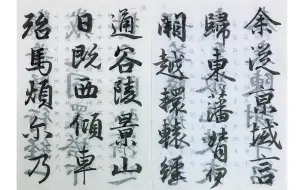 余從京域言
歸東藩背伊
闕越轘轅經
通谷陵景山
日既西傾車
殆馬煩尔乃